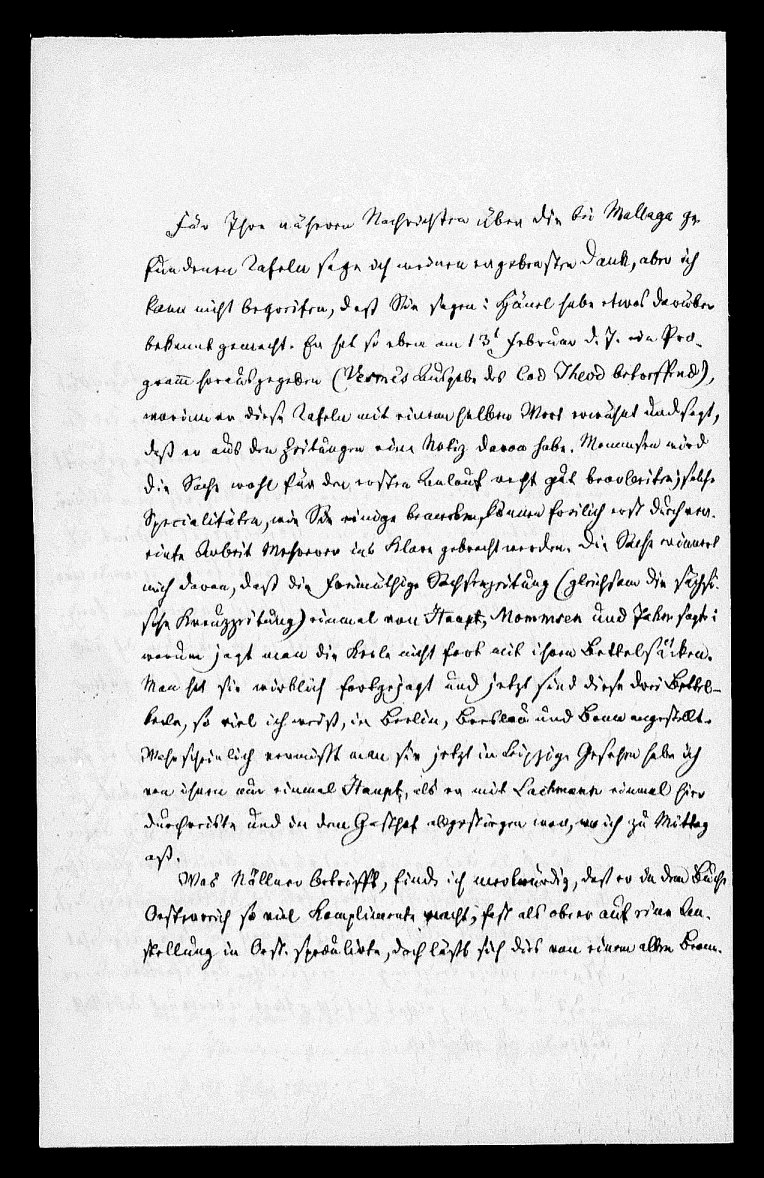 Für Ihre näheren Nachrichten über die bei Mallaga ge-
fundenen Tafeln sage ich meinen ergebensten Dank, aber ich
kann nicht begreifen, daß Sie sagen: Hänel habe etwas darüber
bekannt gemacht. Er hat so eben am 13t Februar d. J. ein Pro-
gram̄ herausgegeben (Vesme's Ausgabe des Cod Theod betreffend),
worinn er diese Tafeln mit einem halben Wort erwähnt und sagt,
daß er aus den Zeitungen eine Notiz davon habe. Mommsen wird
die Sache wohl für den ersten Anlauf recht gut bearbeiten; solche
Specialitäten, wie Sie einige bemerken, können freilich erst durch ver-
einte Arbeit Mehrerer ins Klare gebracht werden. Die Sache erinnert
mich daran, daß die freimüthige Sachsenzeitung (gleichsam die sächsi-
sche Kreuzzeitung) einmal von Haupt, Mommsen und Jahn sagte:
warum jagt man die Kerle nicht fort mit ihren Bettelsäcken.
Man hat sie wirklich fortgejagt und jetzt sind diese drei Bettel-
kerle, so viel ich weiß, in Berlin, Breslau und Bonn angestellt.
Wahrscheinlich vermißt man sie jetzt in Leipzig. Gesehen habe ich
von ihnen nur einmal Haupt, als er mit Lachmann einmal hier
durchreiste und in dem Gasthof abgestiegen war, wo ich zu Mittag
aß.
Was Nöllner betrifft, finde ich merkwürdig, daß er in dem Buche
Oesterreich so viel Komplimente macht, fast als ob er auf eine An-
stellung in Oest. speculirte, doch läßt sich dies von einem alten Beam-